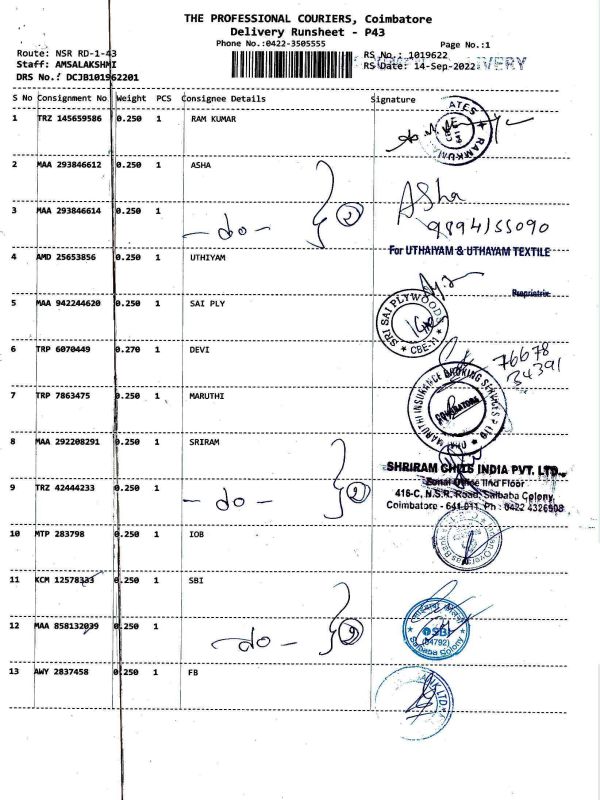 THE PROFESSIONAL COURIERS, Coimbatore
Delivery Runsheet - P43
Phone No.:0422-3505555 Page No.:1
Route: NSR RD-1-43 RS No.: 1019622
Staff: AMSALAKSHMI RS Date: 14-Sep-2022 DELIVERY
DRS No.: DCJB101962201
S No Consignment No Weight PCS Consignee Details Signature
1 TRZ 145659586 0.250 1 RAM KUMAR
2 MAA 293846612 0.250 1 ASHA
Asha
3 MAA 293846614 0.250 1 - do - 2
9894155090
4 AMD 25653856 0.250 1 UTHIYAM
For UTHAIYAM & UTHAYAM TEXTILE
Proprietrix
5 MAA 942244620 0.250 1 SAI PLY
SRI SAI PLYWOODS
CBE-11
6 TRP 6070449 0.270 1 DEVI
76678
34391
7 TRP 7863475 0.250 1 MARUTHI
MARUTHI INSURANCE BROKING SERVICES P LTD
COIMBATORE
8 MAA 292208291 0.250 1 SRIRAM
SHRIRAM CHITS INDIA PVT. LTD.,
Zonal Office IInd Floor
9 TRZ 42444233 0.250 1 - do - 2
416-C, N.S.R. Road, Saibaba Colony,
Coimbatore - 641 011. Ph : 0422 4326908
10 MTP 283798 0.250 1 IOB
11 KCM 12578333 0.250 1 SBI
12 MAA 858132039 0.250 1 - do -
SBI
(04792)
Saibaba Colony
13 AWY 2837458 0.250 1 FB
BANK LTD.